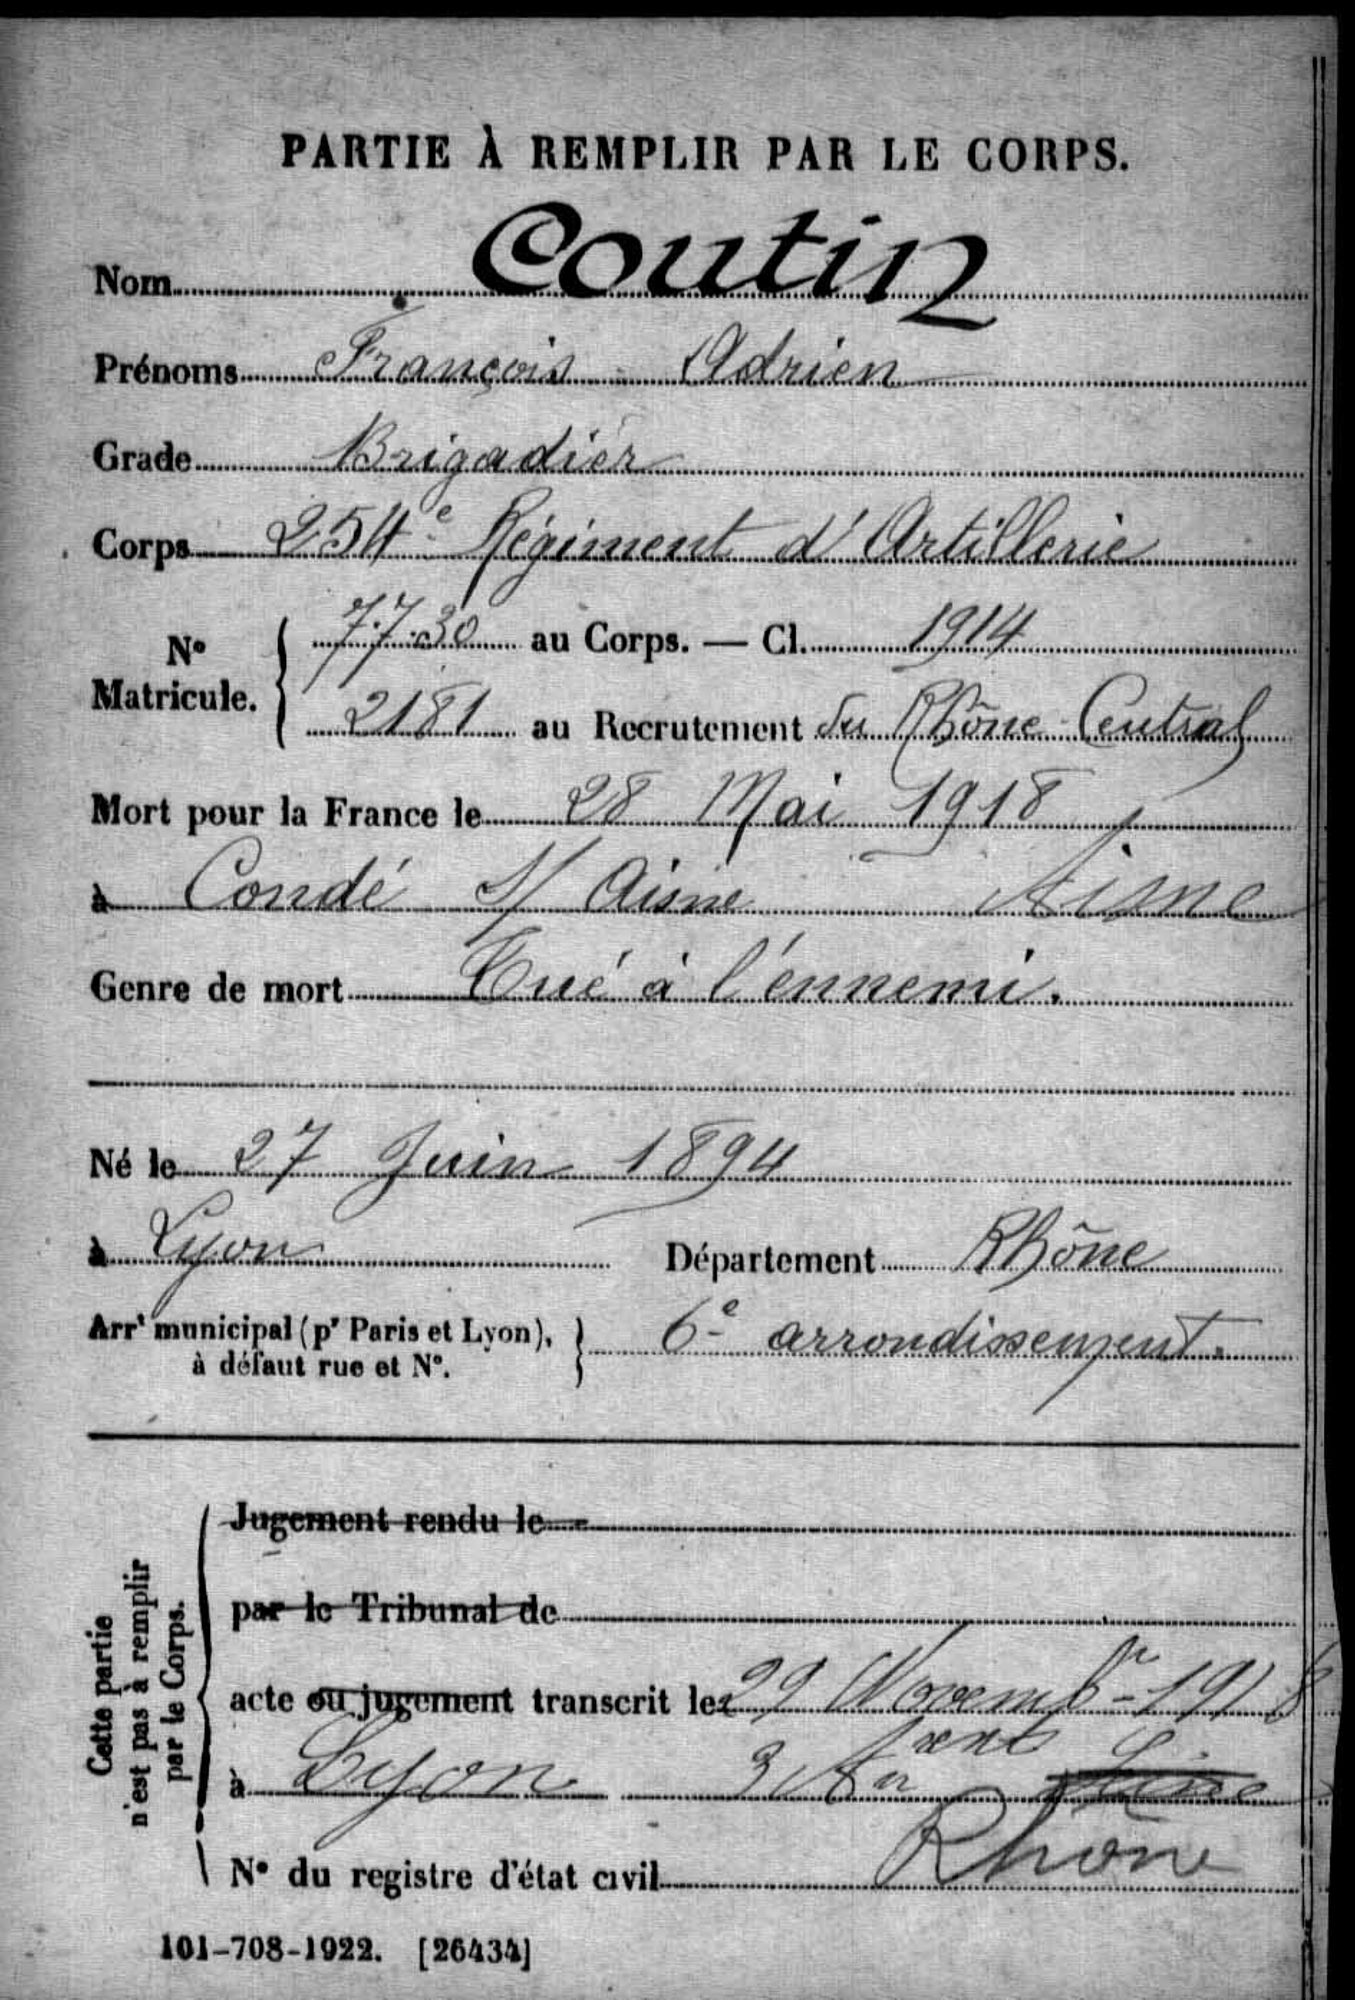 PARTIE À REMPLIR PAR LE CORPS.
Nom Coutin
Prénoms François Adrien
Grade Brigadier
Corps 254e Régiment d'Artillerie
No Matricule. 7730 au Corps. — Cl. 1914
2181 au Recrutement du Rhône Central
Mort pour la France le 28 Mai 1918
à Condé s/ Aisne Aisne
Genre de mort Tué à l'ennemi.
Né le 27 Juin 1894
à Lyon Département Rhône
Arrt municipal (pr Paris et Lyon), à défaut rue et No. 6e arrondissement.
Cette partie n'est pas à remplir par le Corps.
Jugement rendu le
par le Tribunal de
acte ou jugement transcrit le 29 Novembre 1918
à Lyon 3
Rhône
No du registre d'état civil
101-708-1922. [26434]